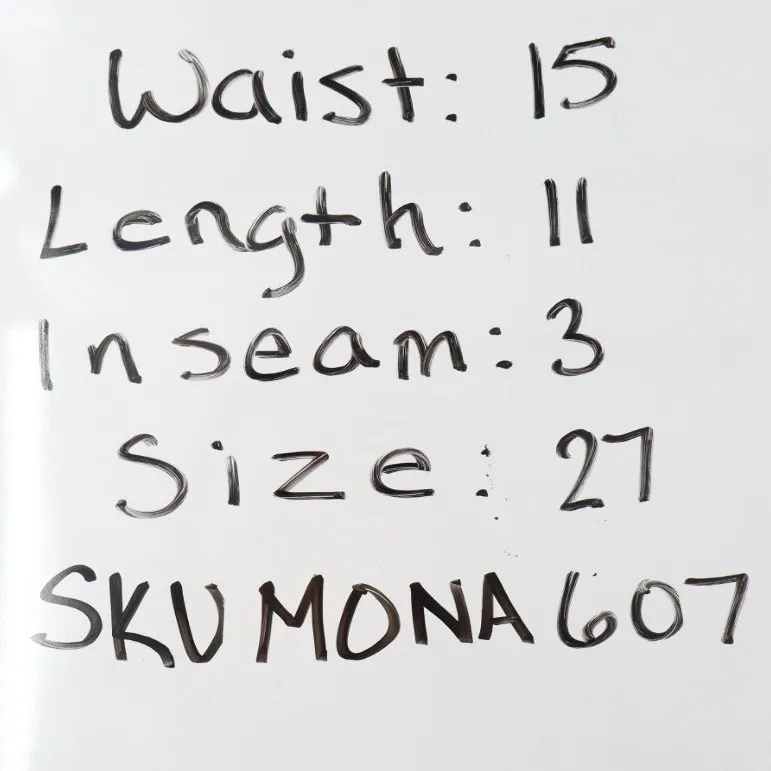 Waist: 15
Length: 11
Inseam: 3
Size: 27
SKU MONA 607